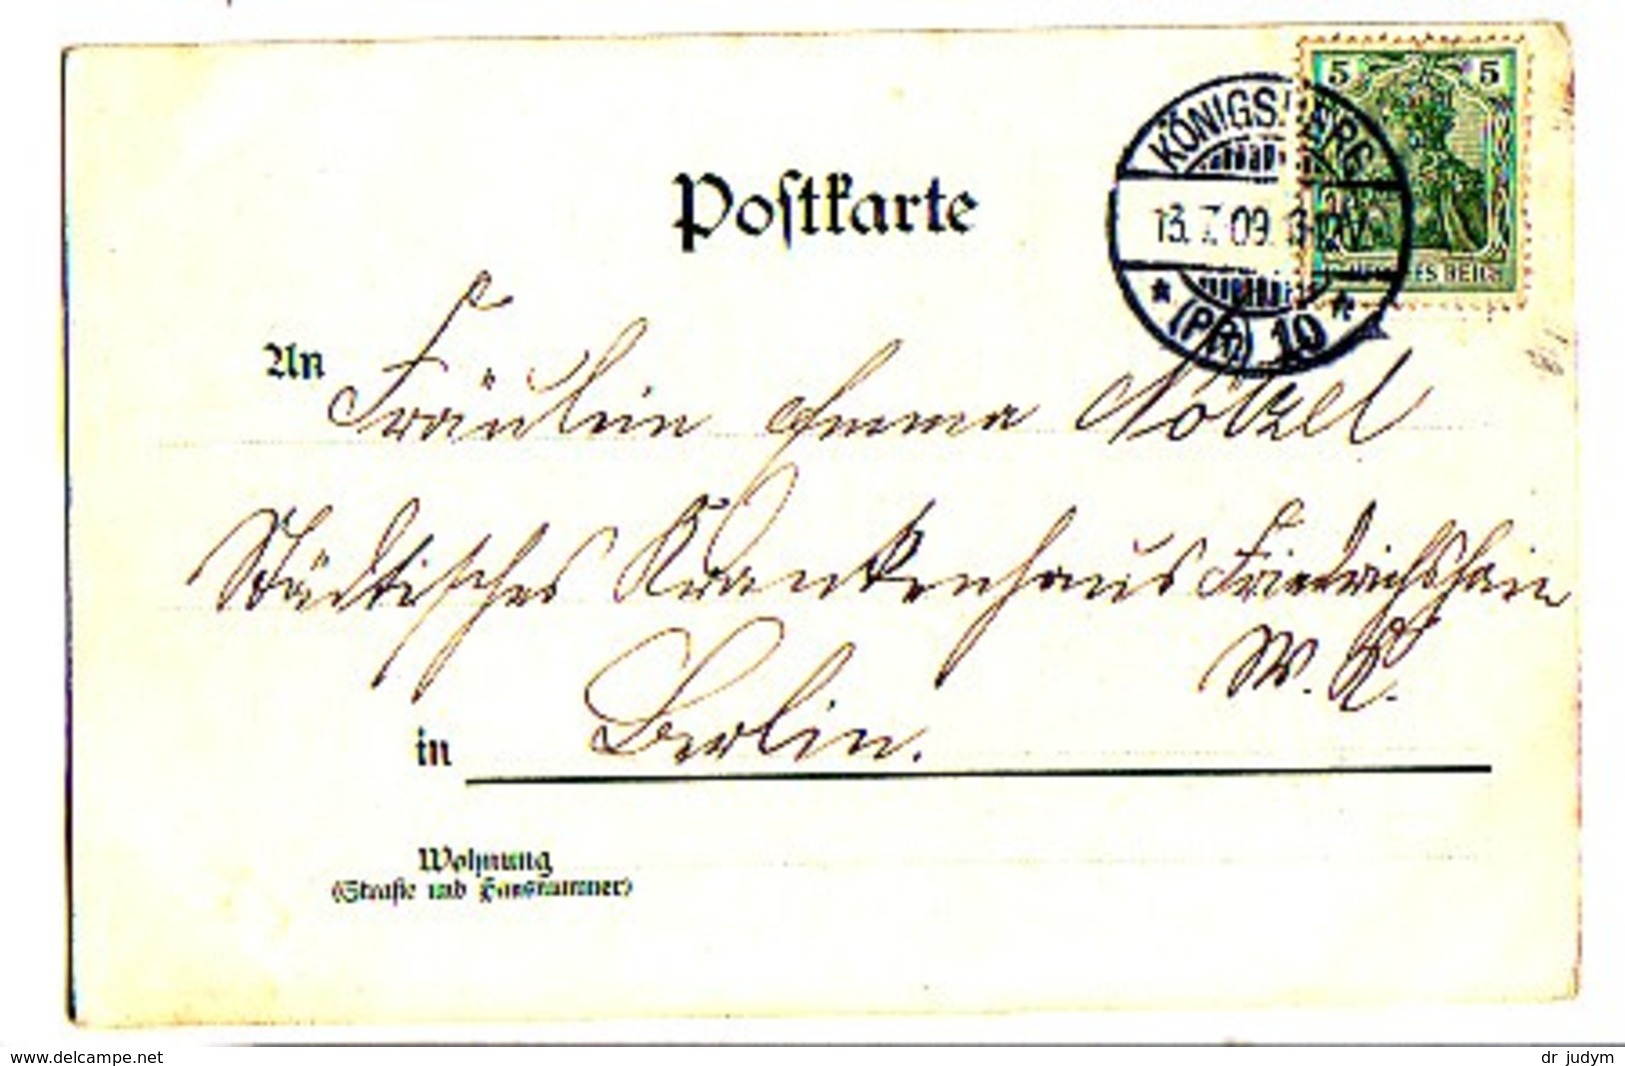 5 5
KÖNIGSBERG
13.7.09.
DEUTSCHES REICH
* (PR.) 10 *
Postkarte
An Fräulein Emma Nötzel
Städtisches Krankenhaus Friedrichshain
in Berlin.
Wohnung
(Straße und Hausnummer)
www.delcampe.net
dr_judym